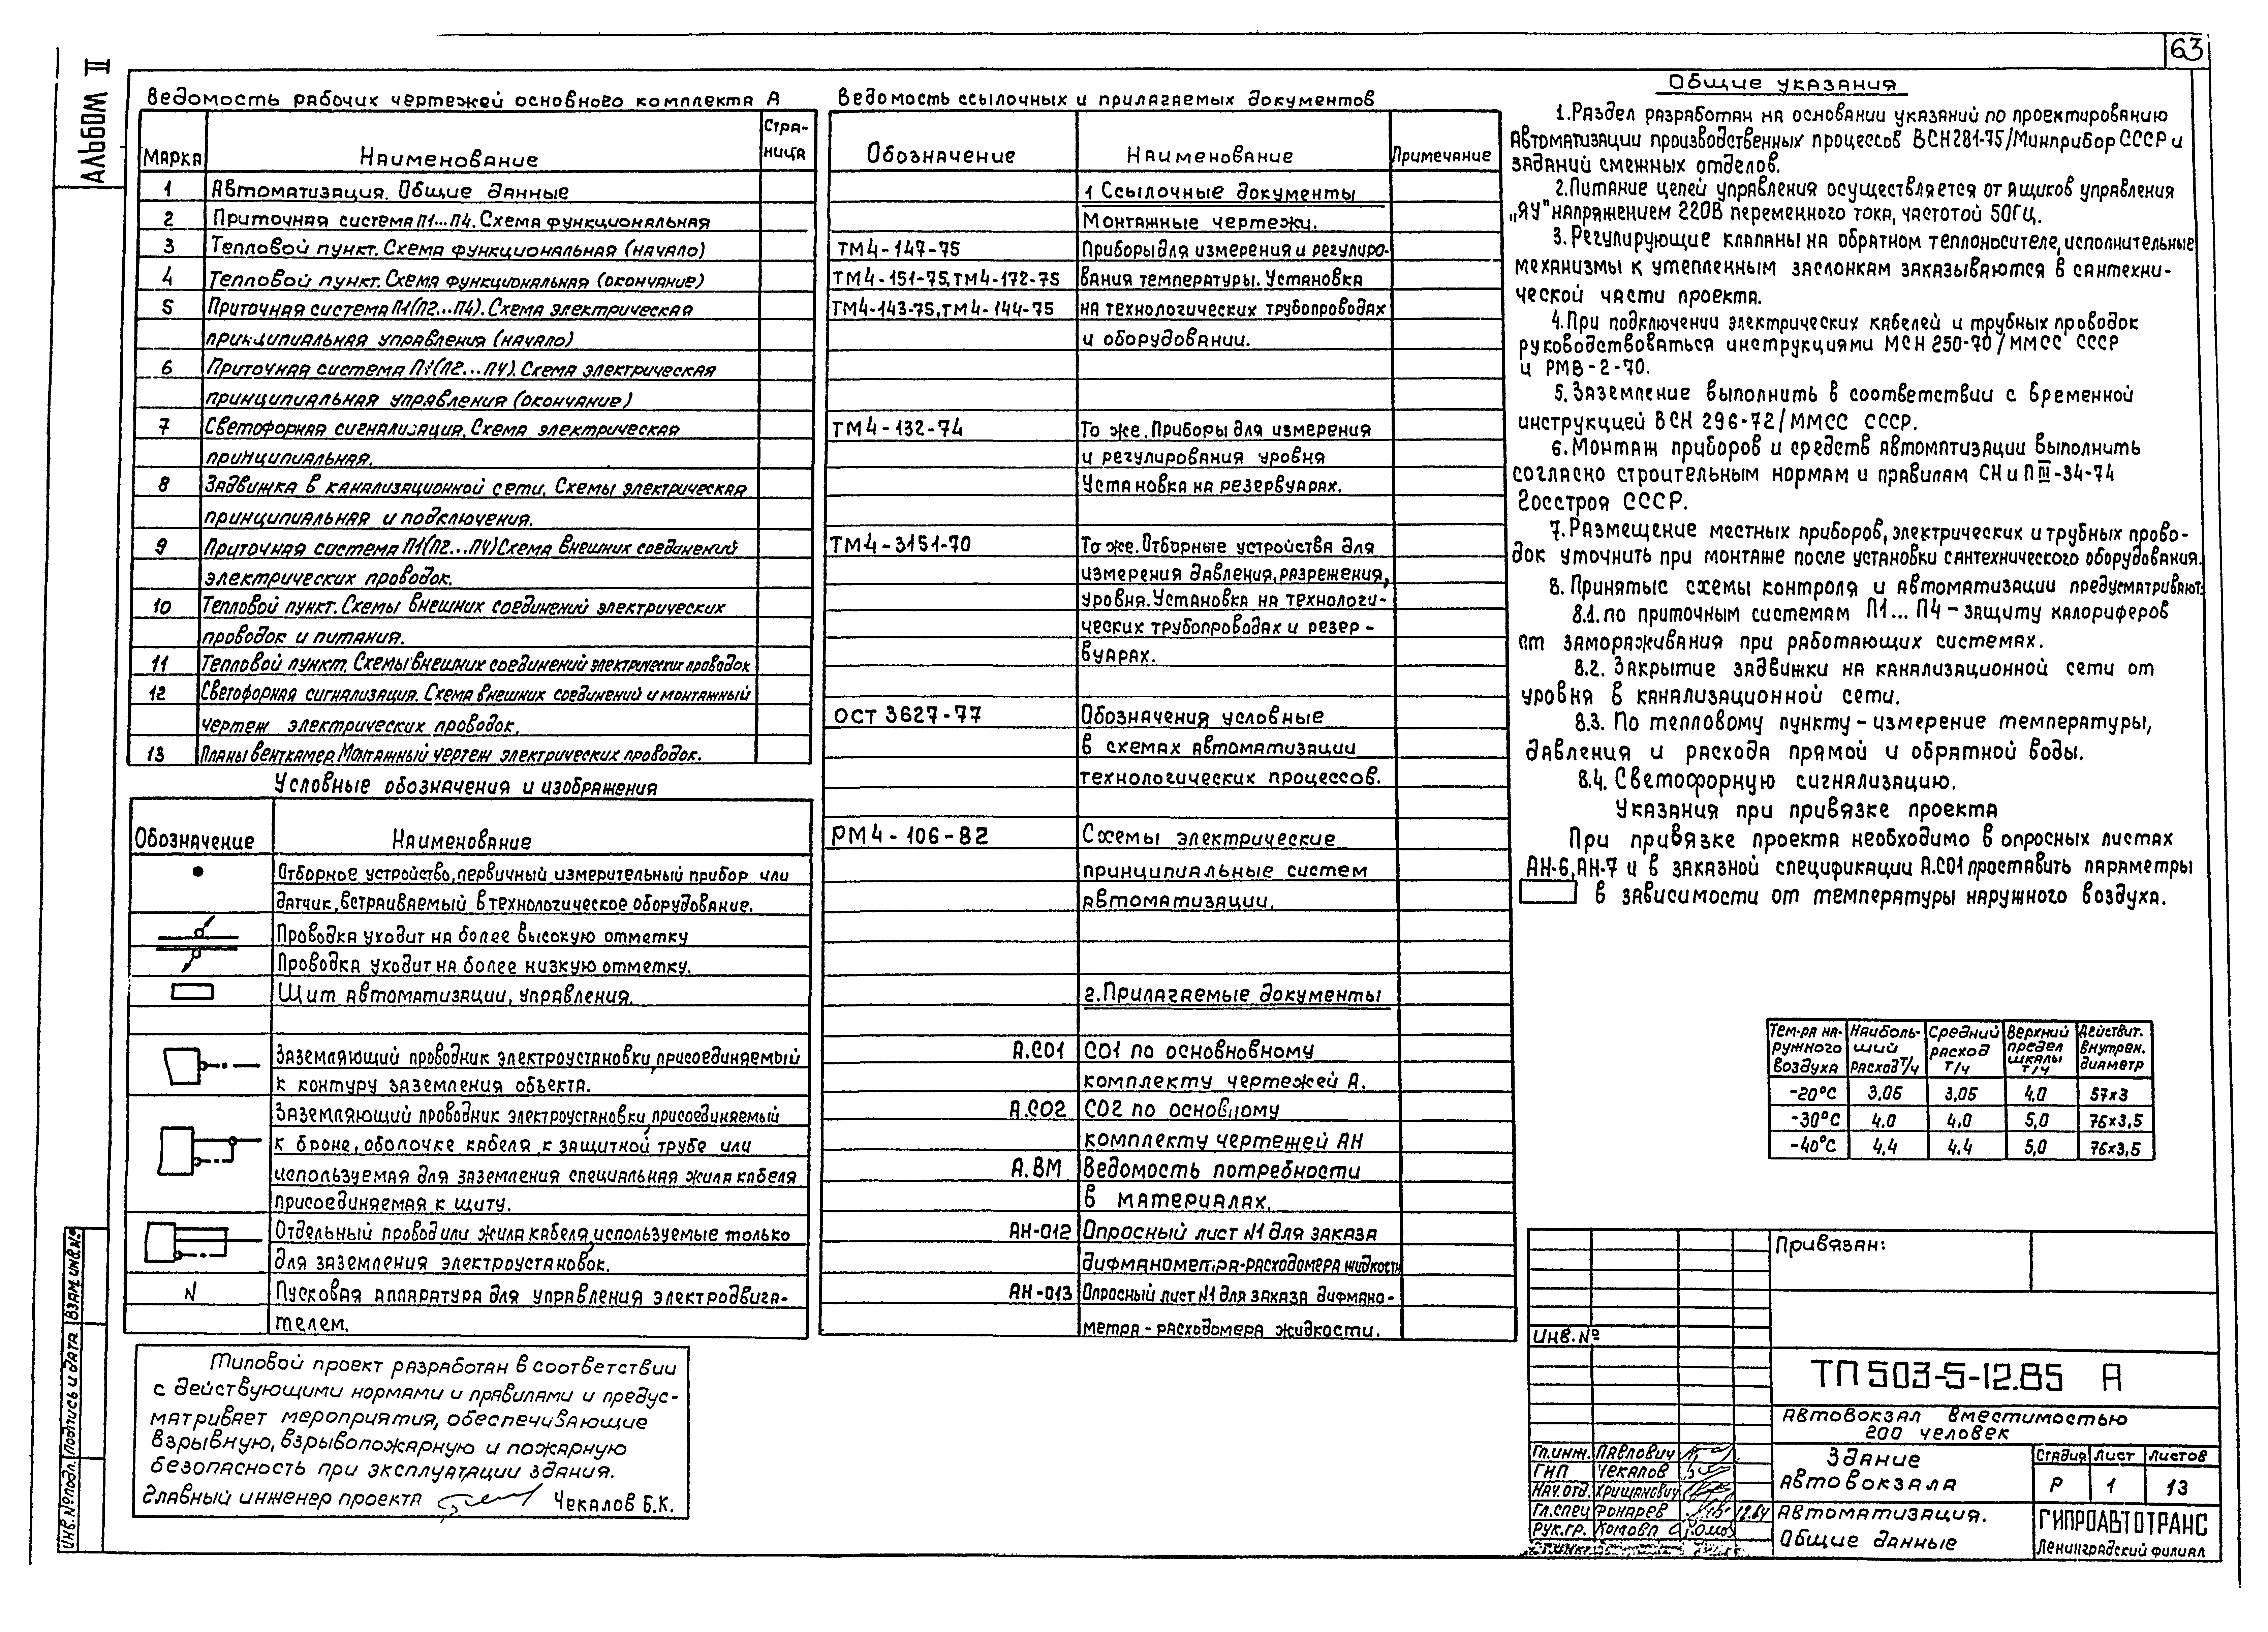 63
Альбом II
Ведомость рабочих чертежей основного комплекта А
Марка
Наименование
Стра-
ница
1 Автоматизация. Общие данные
2 Приточная система П1...П4. Схема функциональная
3 Тепловой пункт. Схема функциональная (начало)
4 Тепловой пункт. Схема функциональная (окончание)
5 Приточная система П1(П2...П4). Схема электрическая
принципиальная управления (начало)
6 Приточная система П1(П2...П4). Схема электрическая
принципиальная управления (окончание)
7 Светофорная сигнализация. Схема электрическая
принципиальная.
8 Задвижка в канализационной сети. Схемы электрическая
принципиальная и подключения.
9 Приточная система П1(П2...П4) Схема внешних соединений
электрических проводок.
10 Тепловой пункт. Схемы внешних соединений электрических
проводок и питания.
11 Тепловой пункт. Схемы внешних соединений электрических проводок
12 Светофорная сигнализация. Схема внешних соединений и монтажный
чертеж электрических проводок.
13 Планы венткамер. Монтажный чертеж электрических проводок.
Условные обозначения и изображения
Обозначение Наименование
Отборное устройство, первичный измерительный прибор или
датчик, встраиваемый в технологическое оборудование.
Проводка уходит на более высокую отметку
Проводка уходит на более низкую отметку.
Щит автоматизации, управления.
Заземляющий проводник электроустановки, присоединяемый
к контуру заземления объекта.
Заземляющий проводник электроустановки, присоединяемый
к броне, оболочке кабеля, к защитной трубе или
используемая для заземления специальная жила кабеля
присоединяемая к щиту.
Отдельный провод или жила кабеля, используемые только
для заземления электроустановок.
N Пусковая аппаратура для управления электродвига-
телем.
Типовой проект разработан в соответствии
с действующими нормами и правилами и предус-
матривает мероприятия, обеспечивающие
взрывную, взрывопожарную и пожарную
безопасность при эксплуатации здания.
Главный инженер проекта Чекалов Б.К.
Ведомость ссылочных и прилагаемых документов
Обозначение Наименование Примечание
1 Ссылочные документы
Монтажные чертежи.
ТМ4-147-75 Приборы для измерения и регулиро-
ТМ4-151-75, ТМ4-172-75 вания температуры. Установка
ТМ4-143-75, ТМ4-144-75 на технологических трубопроводах
и оборудовании.
ТМ4-132-74 То же. Приборы для измерения
и регулирования уровня
Установка на резервуарах.
ТМ4-3151-70 То же. Отборные устройства для
измерения давления, разрежения,
уровня. Установка на технологи-
ческих трубопроводах и резер-
вуарах.
ОСТ 3627-77 Обозначения условные
в схемах автоматизации
технологических процессов.
РМ4-106-82 Схемы электрические
принципиальные систем
автоматизации.
2. Прилагаемые документы
А.СО1 СО1 по основновному
комплекту чертежей А.
А.СО2 СО2 по основному
комплекту чертежей АН
А.ВМ Ведомость потребности
в материалах.
АН-012 Опросный лист N1 для заказа
дифманометра-расходомера жидкости
АН-013 Опросный лист N1 для заказа дифмано-
метра-расходомера жидкости.
Общие указания
1. Раздел разработан на основании указаний по проектированию
автоматизации производственных процессов ВСН 281-75/Минприбор СССР и
заданий смежных отделов.
2. Питание цепей управления осуществляется от ящиков управления
„ЯУ" напряжением 220В переменного тока, частотой 50Гц.
3. Регулирующие клапаны на обратном теплоносителе, исполнительные
механизмы к утепленным заслонкам заказываются в сантехни-
ческой части проекта.
4. При подключении электрических кабелей и трубных проводок
руководствоваться инструкциями МСН 250-70/ММСС СССР
и РМВ-2-70.
5. Заземление выполнить в соответствии с Временной
инструкцией ВСН 296-72/ММСС СССР.
6. Монтаж приборов и средств автоматизации выполнить
согласно строительным нормам и правилам СН и П III-34-74
Госстроя СССР.
7. Размещение местных приборов, электрических и трубных прово-
док уточнить при монтаже после установки сантехнического оборудования.
8. Принятые схемы контроля и автоматизации предусматривают:
8.1. по приточным системам П1...П4 - защиту калориферов
от замораживания при работающих системах.
8.2. Закрытие задвижки на канализационной сети от
уровня в канализационной сети.
8.3. По тепловому пункту - измерение температуры,
давления и расхода прямой и обратной воды.
8.4. Светофорную сигнализацию.
Указания при привязке проекта
При привязке проекта необходимо в опросных листах
АН-6, АН-7 и в заказной спецификации А.СО1 проставить параметры
в зависимости от температуры наружного воздуха.
Тем-ра на-
ружного
воздуха
Наиболь-
ший
расход Т/ч
Средний
расход
Т/ч
Верхний
предел
шкалы
Т/ч
Действит.
внутрен.
диаметр
-20°С 3,05 3,05 4,0 57×3
-30°С 4,0 4,0 5,0 76×3,5
-40°С 4,4 4,4 5,0 76×3,5
Привязан:
Инв.№
ТП 503-5-12.85 А
Автовокзал вместимостью
200 человек
Гл.инж. Павлович
ГИП Чекалов
Нач.отд. Хришанович
Гл.спец Фонарев 12.84
Рук.гр.
Здание
автовокзала
Стадия Лист Листов
Р 1 13
Автоматизация.
Общие данные
ГИПРОАВТОТРАНС
Ленинградский филиал
Инв.№ подл. Подпись и дата Взам.инв.№